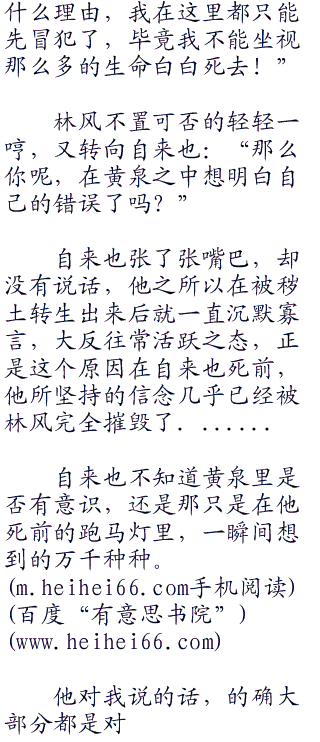 什么理由，我在这里都只能
先冒犯了，毕竟我不能坐视
那么多的生命白白死去！”
林风不置可否的轻轻一
哼，又转向自来也：“那么
你呢，在黄泉之中想明白自
己的错误了吗？”
自来也张了张嘴巴，却
没有说话，他之所以在被秽
土转生出来后就一直沉默寡
言，大反往常活跃之态，正
是这个原因在自来也死前，
他所坚持的信念几乎已经被
林风完全摧毁了．．．．．．．
自来也不知道黄泉里是
否有意识，还是那只是在他
死前的跑马灯里，一瞬间想
到的万千种种。
(m.heihei66.com手机阅读)
(百度“有意思书院”)
(www.heihei66.com)
他对我说的话，的确大
部分都是对